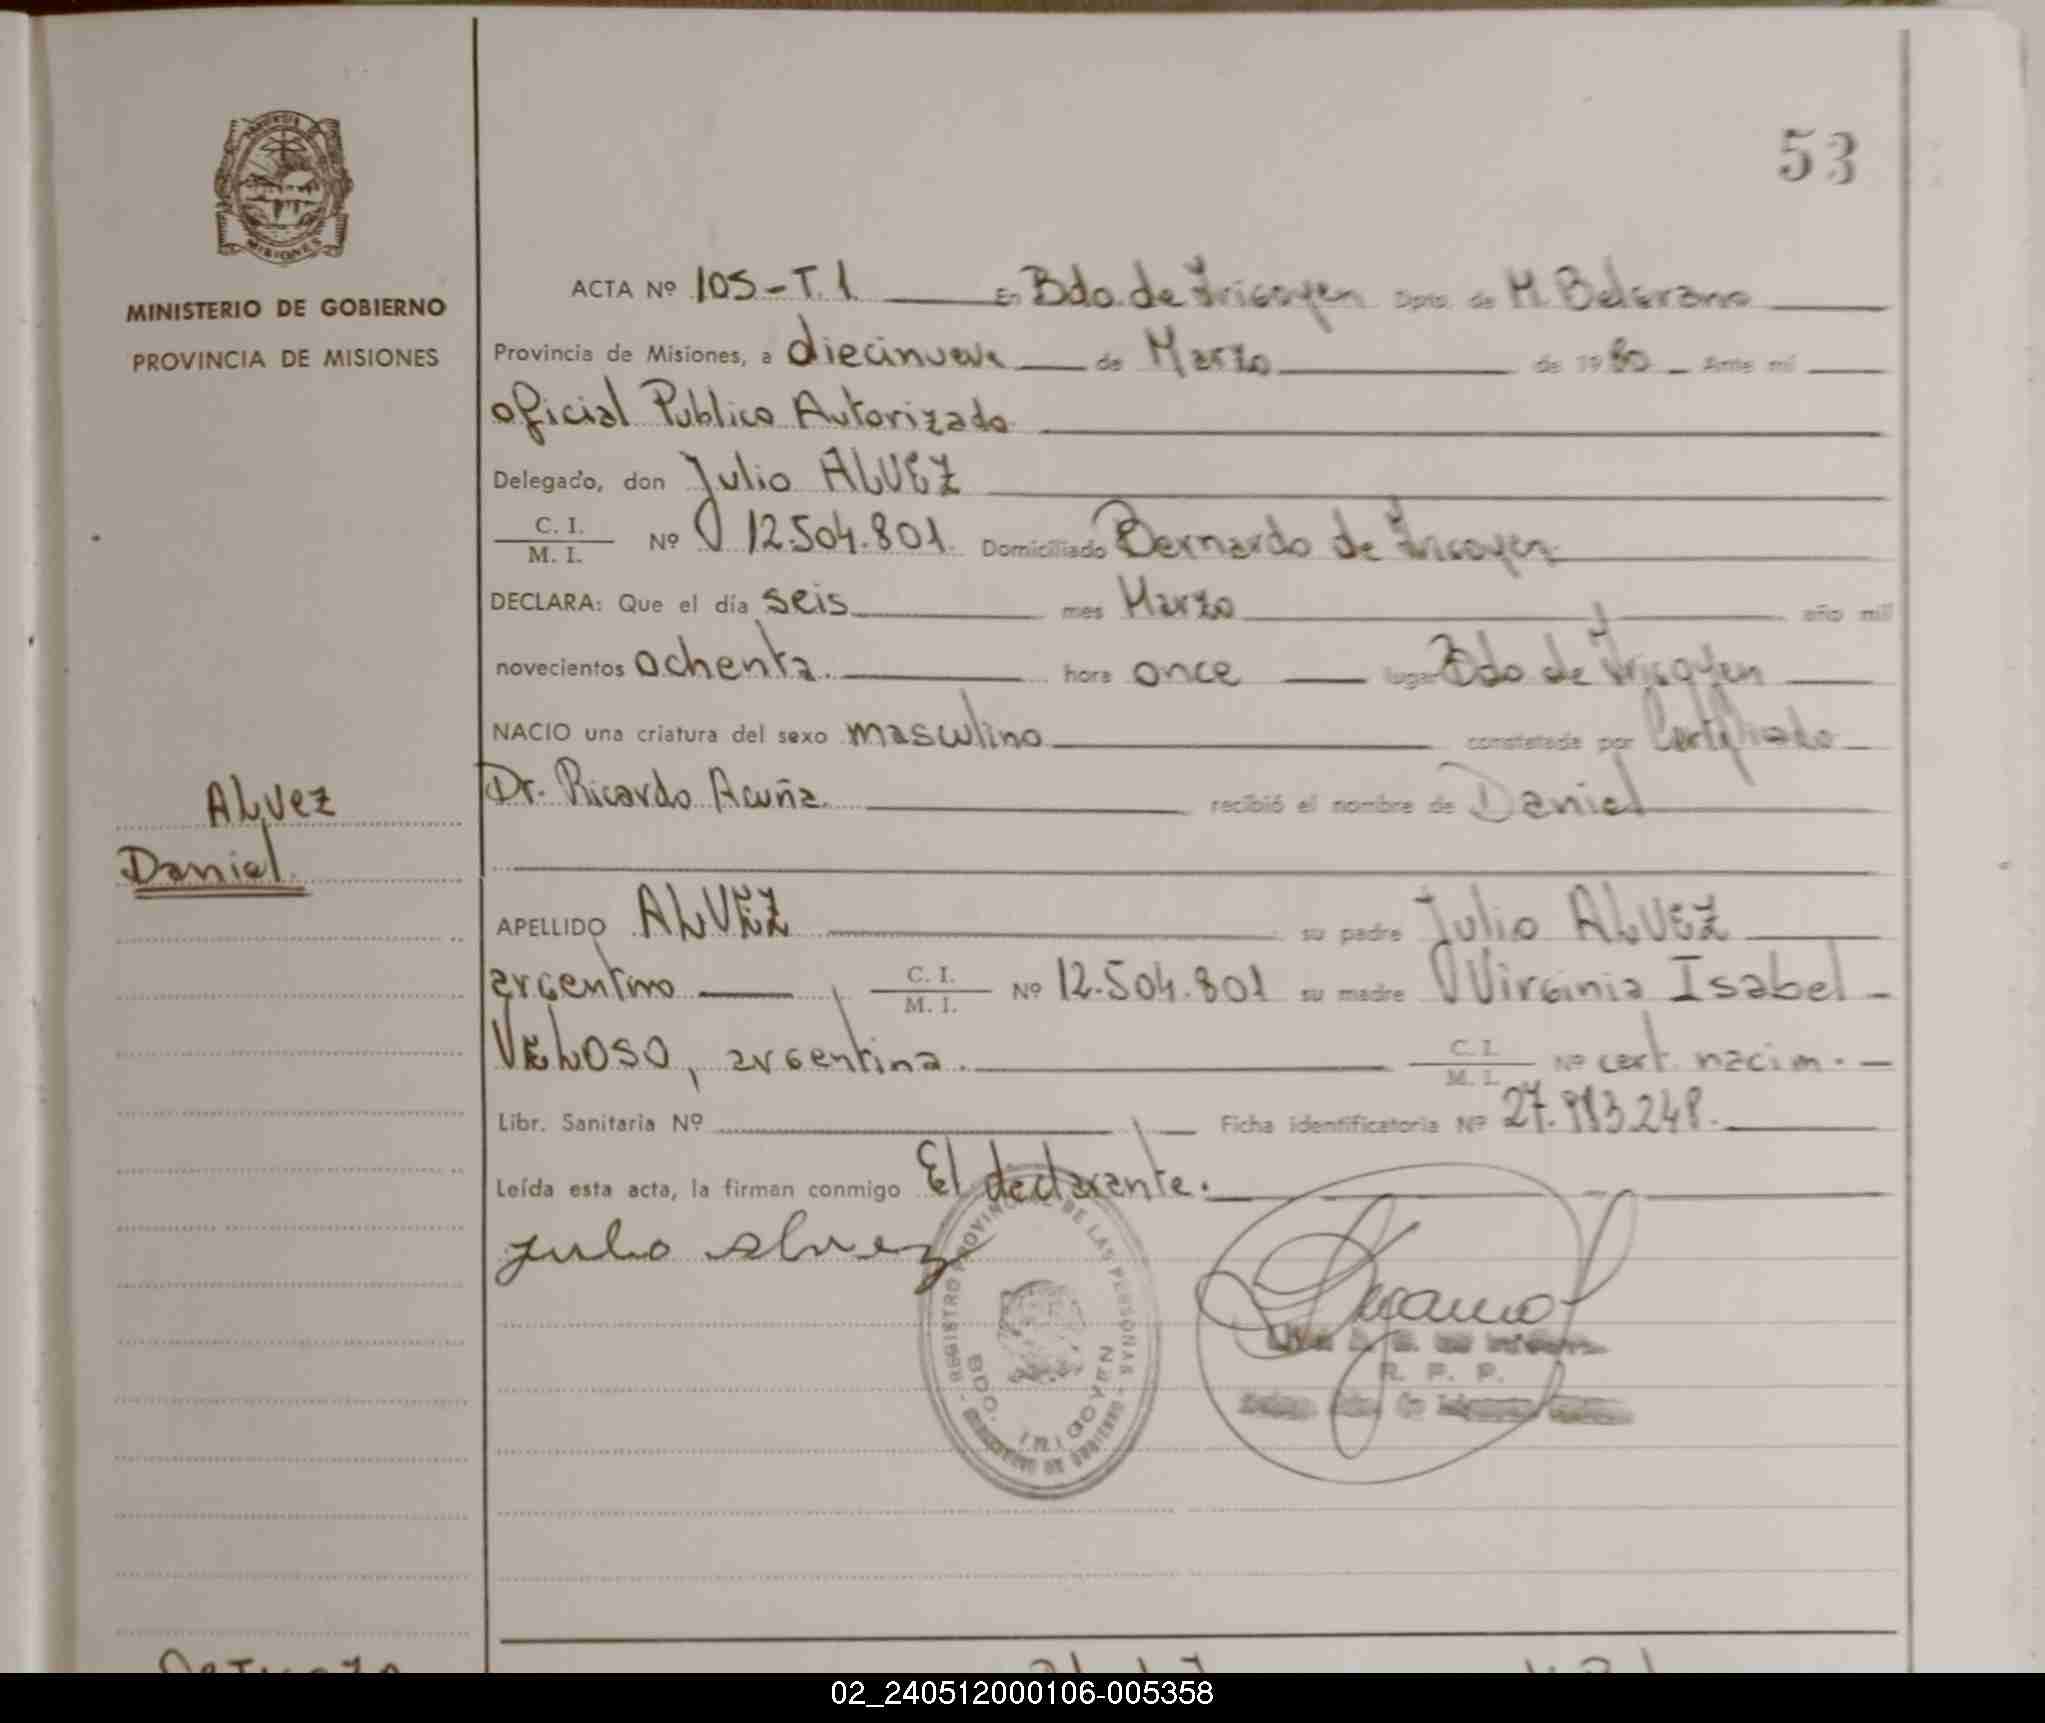 53
MINISTERIO DE GOBIERNO
PROVINCIA DE MISIONES
ACTA Nº 105-T.1 En Bdo. de Irigoyen Dpto. de M. Belgrano
Provincia de Misiones, a diecinueve de Marzo de 1980 Ante mi
oficial Publico Autorizado
Delegado, don Julio ALVEZ
C. I.
M. I. Nº 12.504.801. Domiciliado Bernardo de Irigoyen
DECLARA: Que el día seis mes Marzo año mil
novecientos ochenta. hora once lugar Bdo de Irigoyen
NACIO una criatura del sexo masculino constatada por Certificado
Dr. Ricardo Acuña. recibió el nombre de Daniel
Alvez
Daniel.
APELLIDO ALVEZ su padre Julio ALVEZ
argentino C. I.
M. I. Nº 12.504.801 su madre Virginia Isabel
VELOSO, argentina. C. I.
M. I. Nº cert. nacim.
Libr. Sanitaria Nº Ficha identificatoria Nº 27.913.248.
Leída esta acta, la firman conmigo El declarante.
Julio Alvez
REGISTRO PROVINCIAL DE LAS PERSONAS
BDO. IRIGOYEN
R. P. P.
02_240512000106-005358